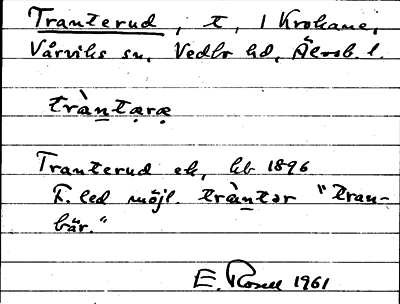 Tranterud, t, i Krokane,
Vårviks sn, Vedbo hd, Älvsb. l.
tràntæræ
Tranterud ek, kb 1896
F. led möjl. tràntər "tran-
bär."
E. Rosell 1961